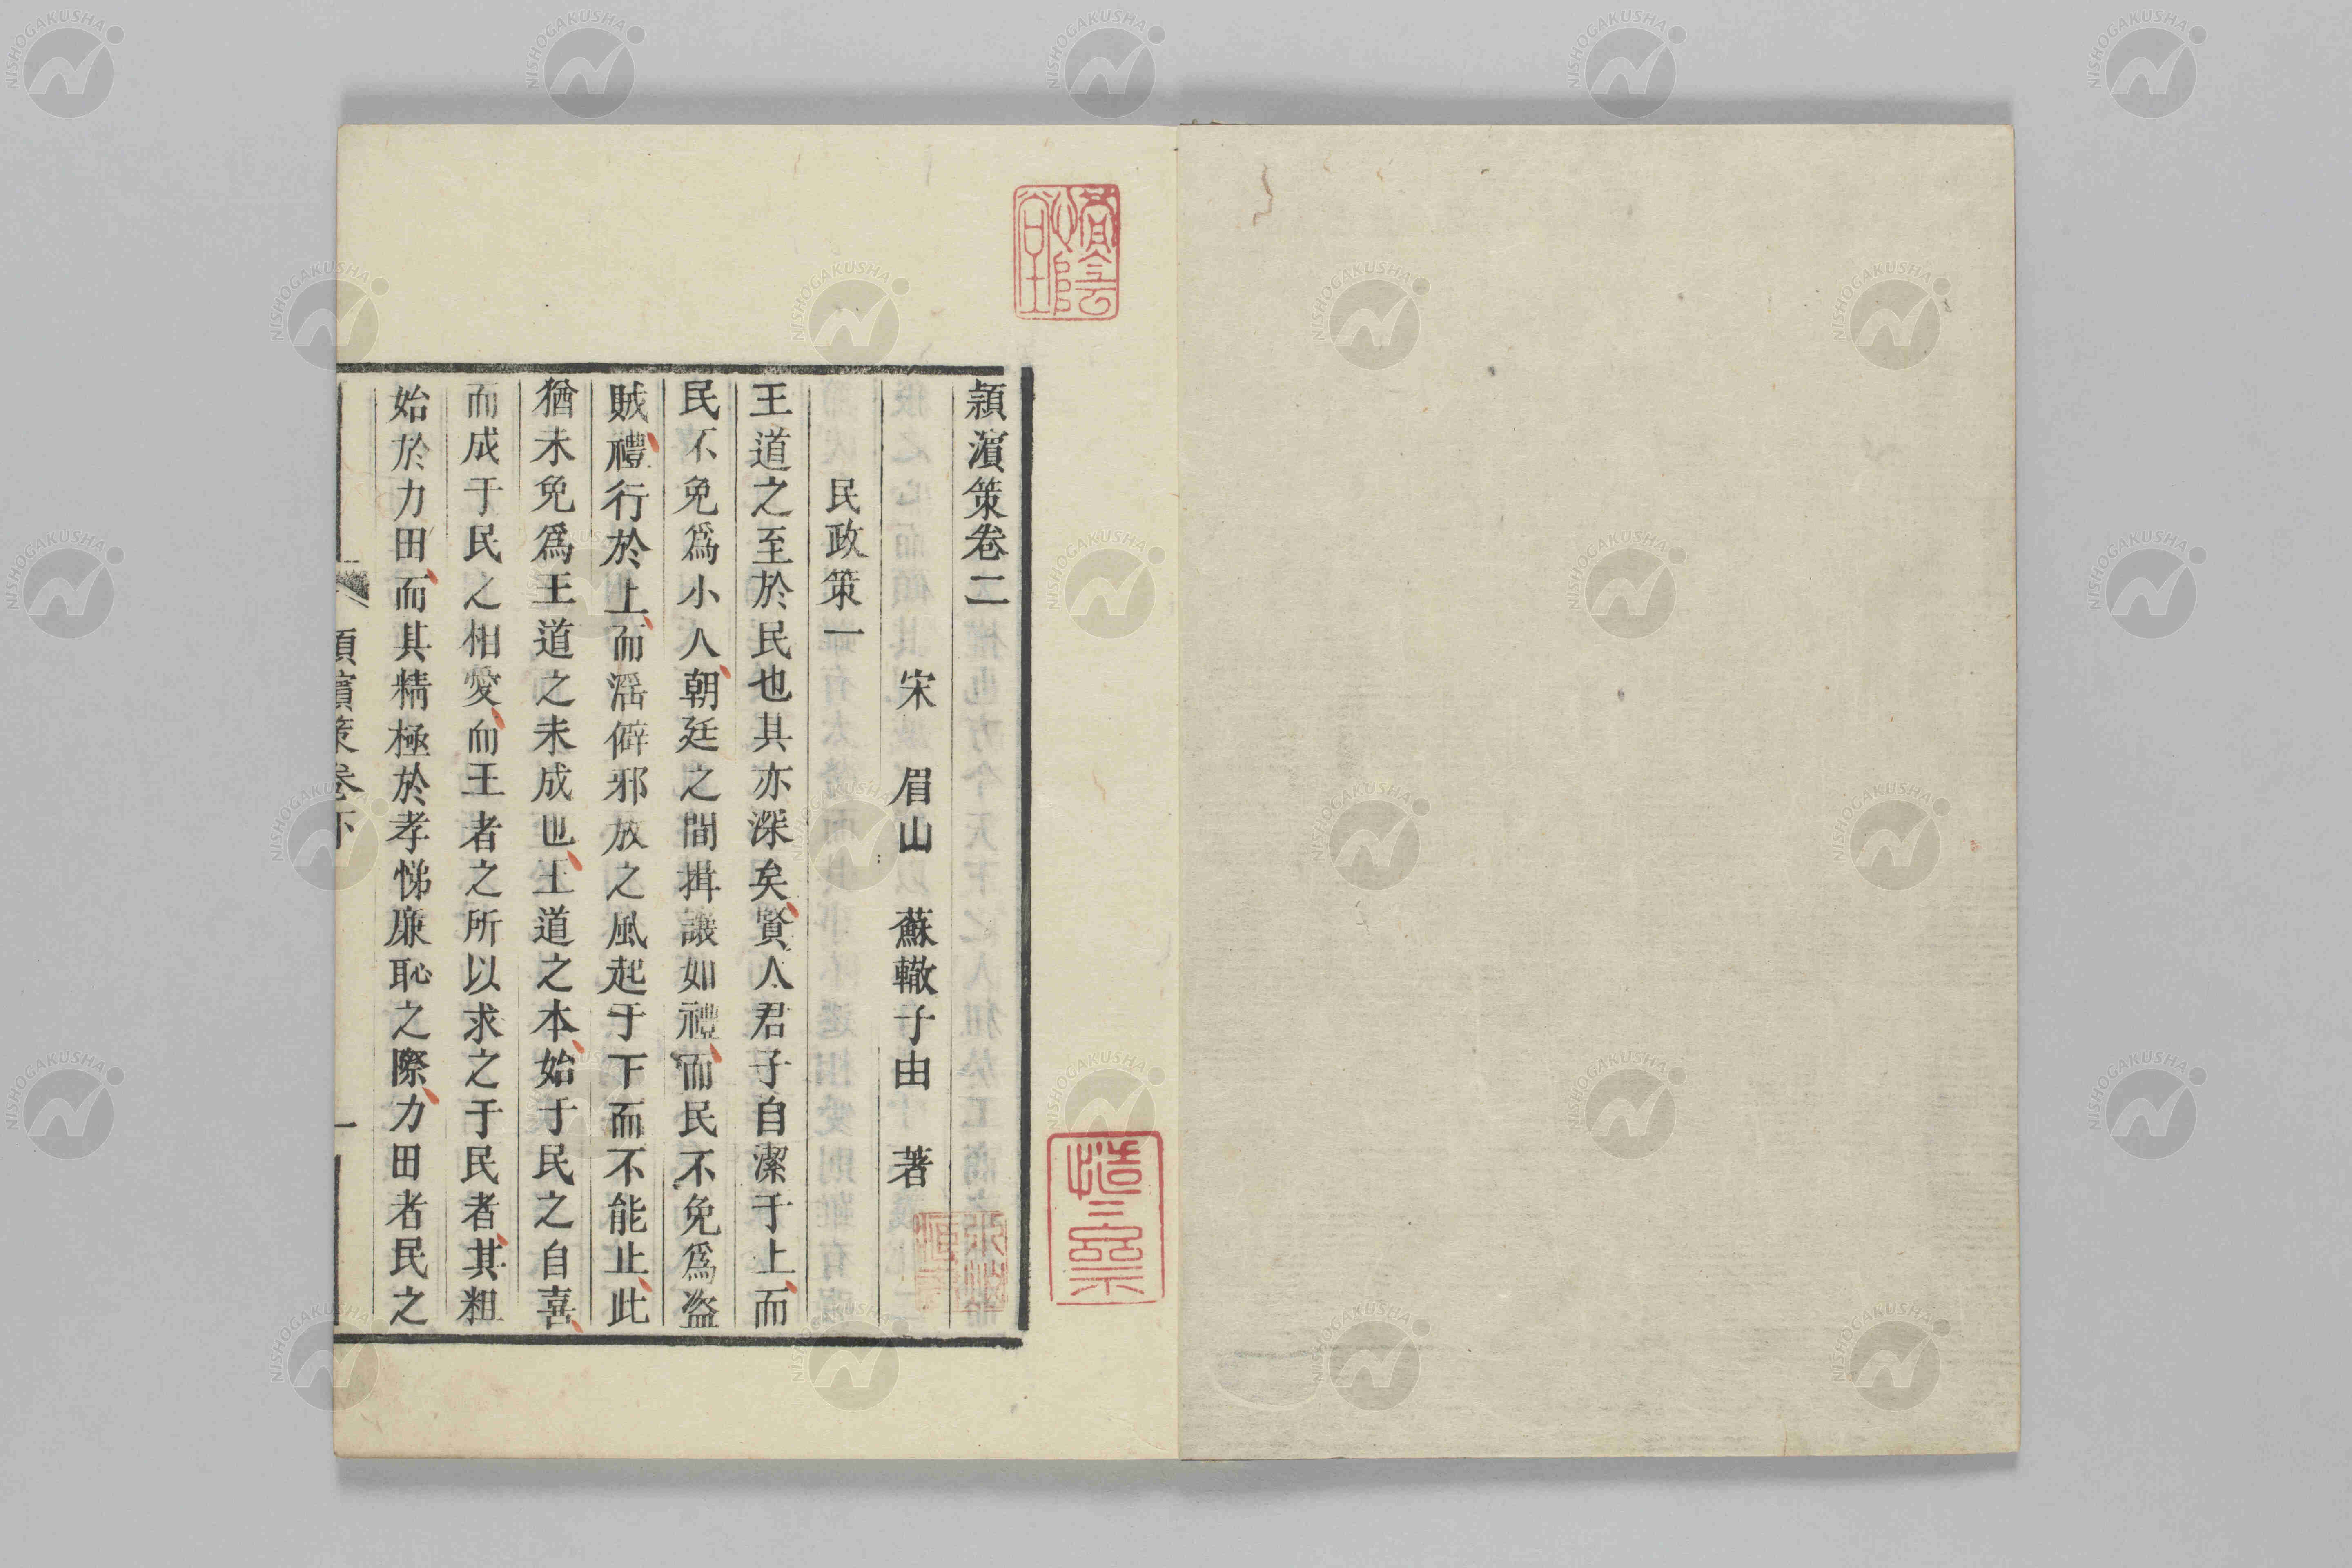 頴濵策卷二
宋　眉山　蘇轍子由　著
民政策一
王道之至於民也其亦深矣賢人君子自潔于上而
民不免爲小人朝廷之間揖讓如禮而民不免爲盜
賊禮行於上而滛僻邪放之風起于下而不能止此
猶未免爲王道之未成也王道之本始于民之自喜
而成于民之相愛而王者之所以求之于民者其粗
始於力田而其精極於孝悌廉恥之際力田者民之
頴濵策卷下
一
NISHOGAKUSHA